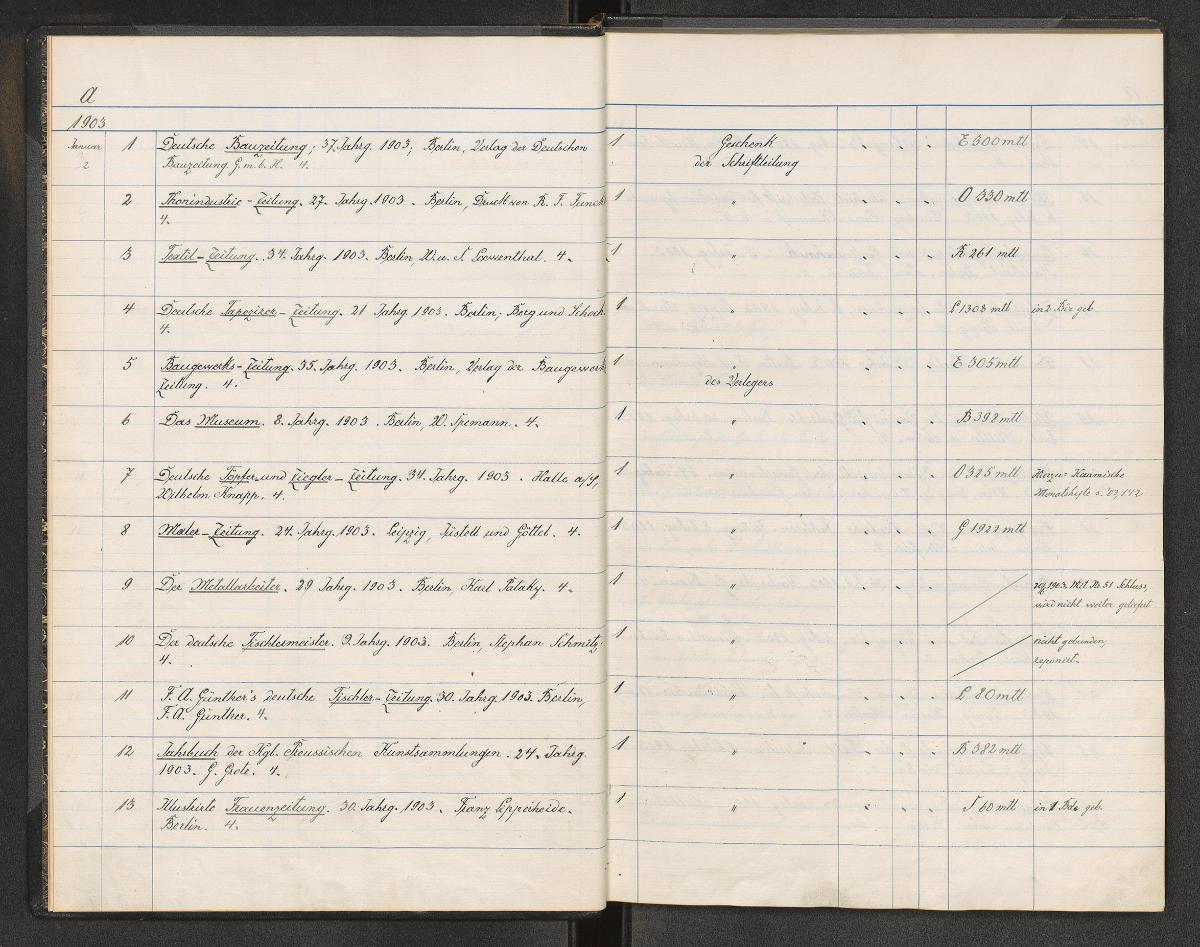 a
1903
Januar 1 Deutsche Bauzeitung; 37. Jahrg. 1903; Berlin, Verlag der Deutschen 1 Geschenk E 300 mtl
2 Bauzeitung G.m.b.H. 4. der Schriftleitung
2 Thonindustrie-Zeitung. 27. Jahrg. 1903. Berlin, Druck von R. F. Funck 1 " O 330 mtl
4.
3 Textil-Zeitung. 34. Jahrg. 1903. Berlin, W. u. S. Loewenthal. 4. 1 " R 261 mtl
4 Deutsche Tapezirer-Zeitung. 21 Jahrg. 1903. Berlin; Berg und Schoch. 1 " L 1308 mtl in 2 Bde geb.
4.
5 Baugewerks-Zeitung. 35. Jahrg. 1903. Berlin, Verlag der Baugewerk 1 " E 305 mtl
Zeitung. 4. des Verlegers
6 Das Museum. 8. Jahrg. 1903. Berlin, W. Spemann. 4. 1 " B 398 mtl
7 Deutsche Töpfer und Ziegler-Zeitung. 34. Jahrg. 1903. Halle a/S, 1 " O 325 mtl Hierzu: Keramische
Wilhelm Knapp. 4. Monatshefte s. '03, 142
8 Maler-Zeitung. 24. Jahrg. 1903. Leipzig, Jüstell und Göttel. 4. 1 " G 1922 mtl
9 Der Metallarbeiter. 29 Jahrg. 1903. Berlin, Karl Pataky. 4. 1 " 1903. Mit Nr 51 Schluss,
wird nicht weiter geliefert
10 Der deutsche Tischlermeister. 9. Jahrg. 1903. Berlin, Stephan Schmitz. 1 " nicht gebunden,
4. reponirt.
11 F. A. Günther's deutsche Tischler-Zeitung. 30. Jahrg. 1903. Berlin, 1 " L 80 mtl
F. A. Günther. 4.
12 Jahrbuch der Kgl. Preussischen Kunstsammlungen. 24. Jahrg. 1 " B 382 mtl
1903. G. Grote. 4.
13 Illustrirte Frauenzeitung. 30. Jahrg. 1903. Franz Lipperheide. 1 " T 60 mtl in 1 Bde geb.
Berlin. 4.